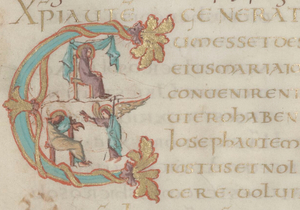 XPIAUTE GENERAT
UMESSETDE
EIUSMARIAIO
CONUENIREN
UTEROHABEN
IOSEPHAUTEM
IUSTUSETNOL
CERE UOLUI